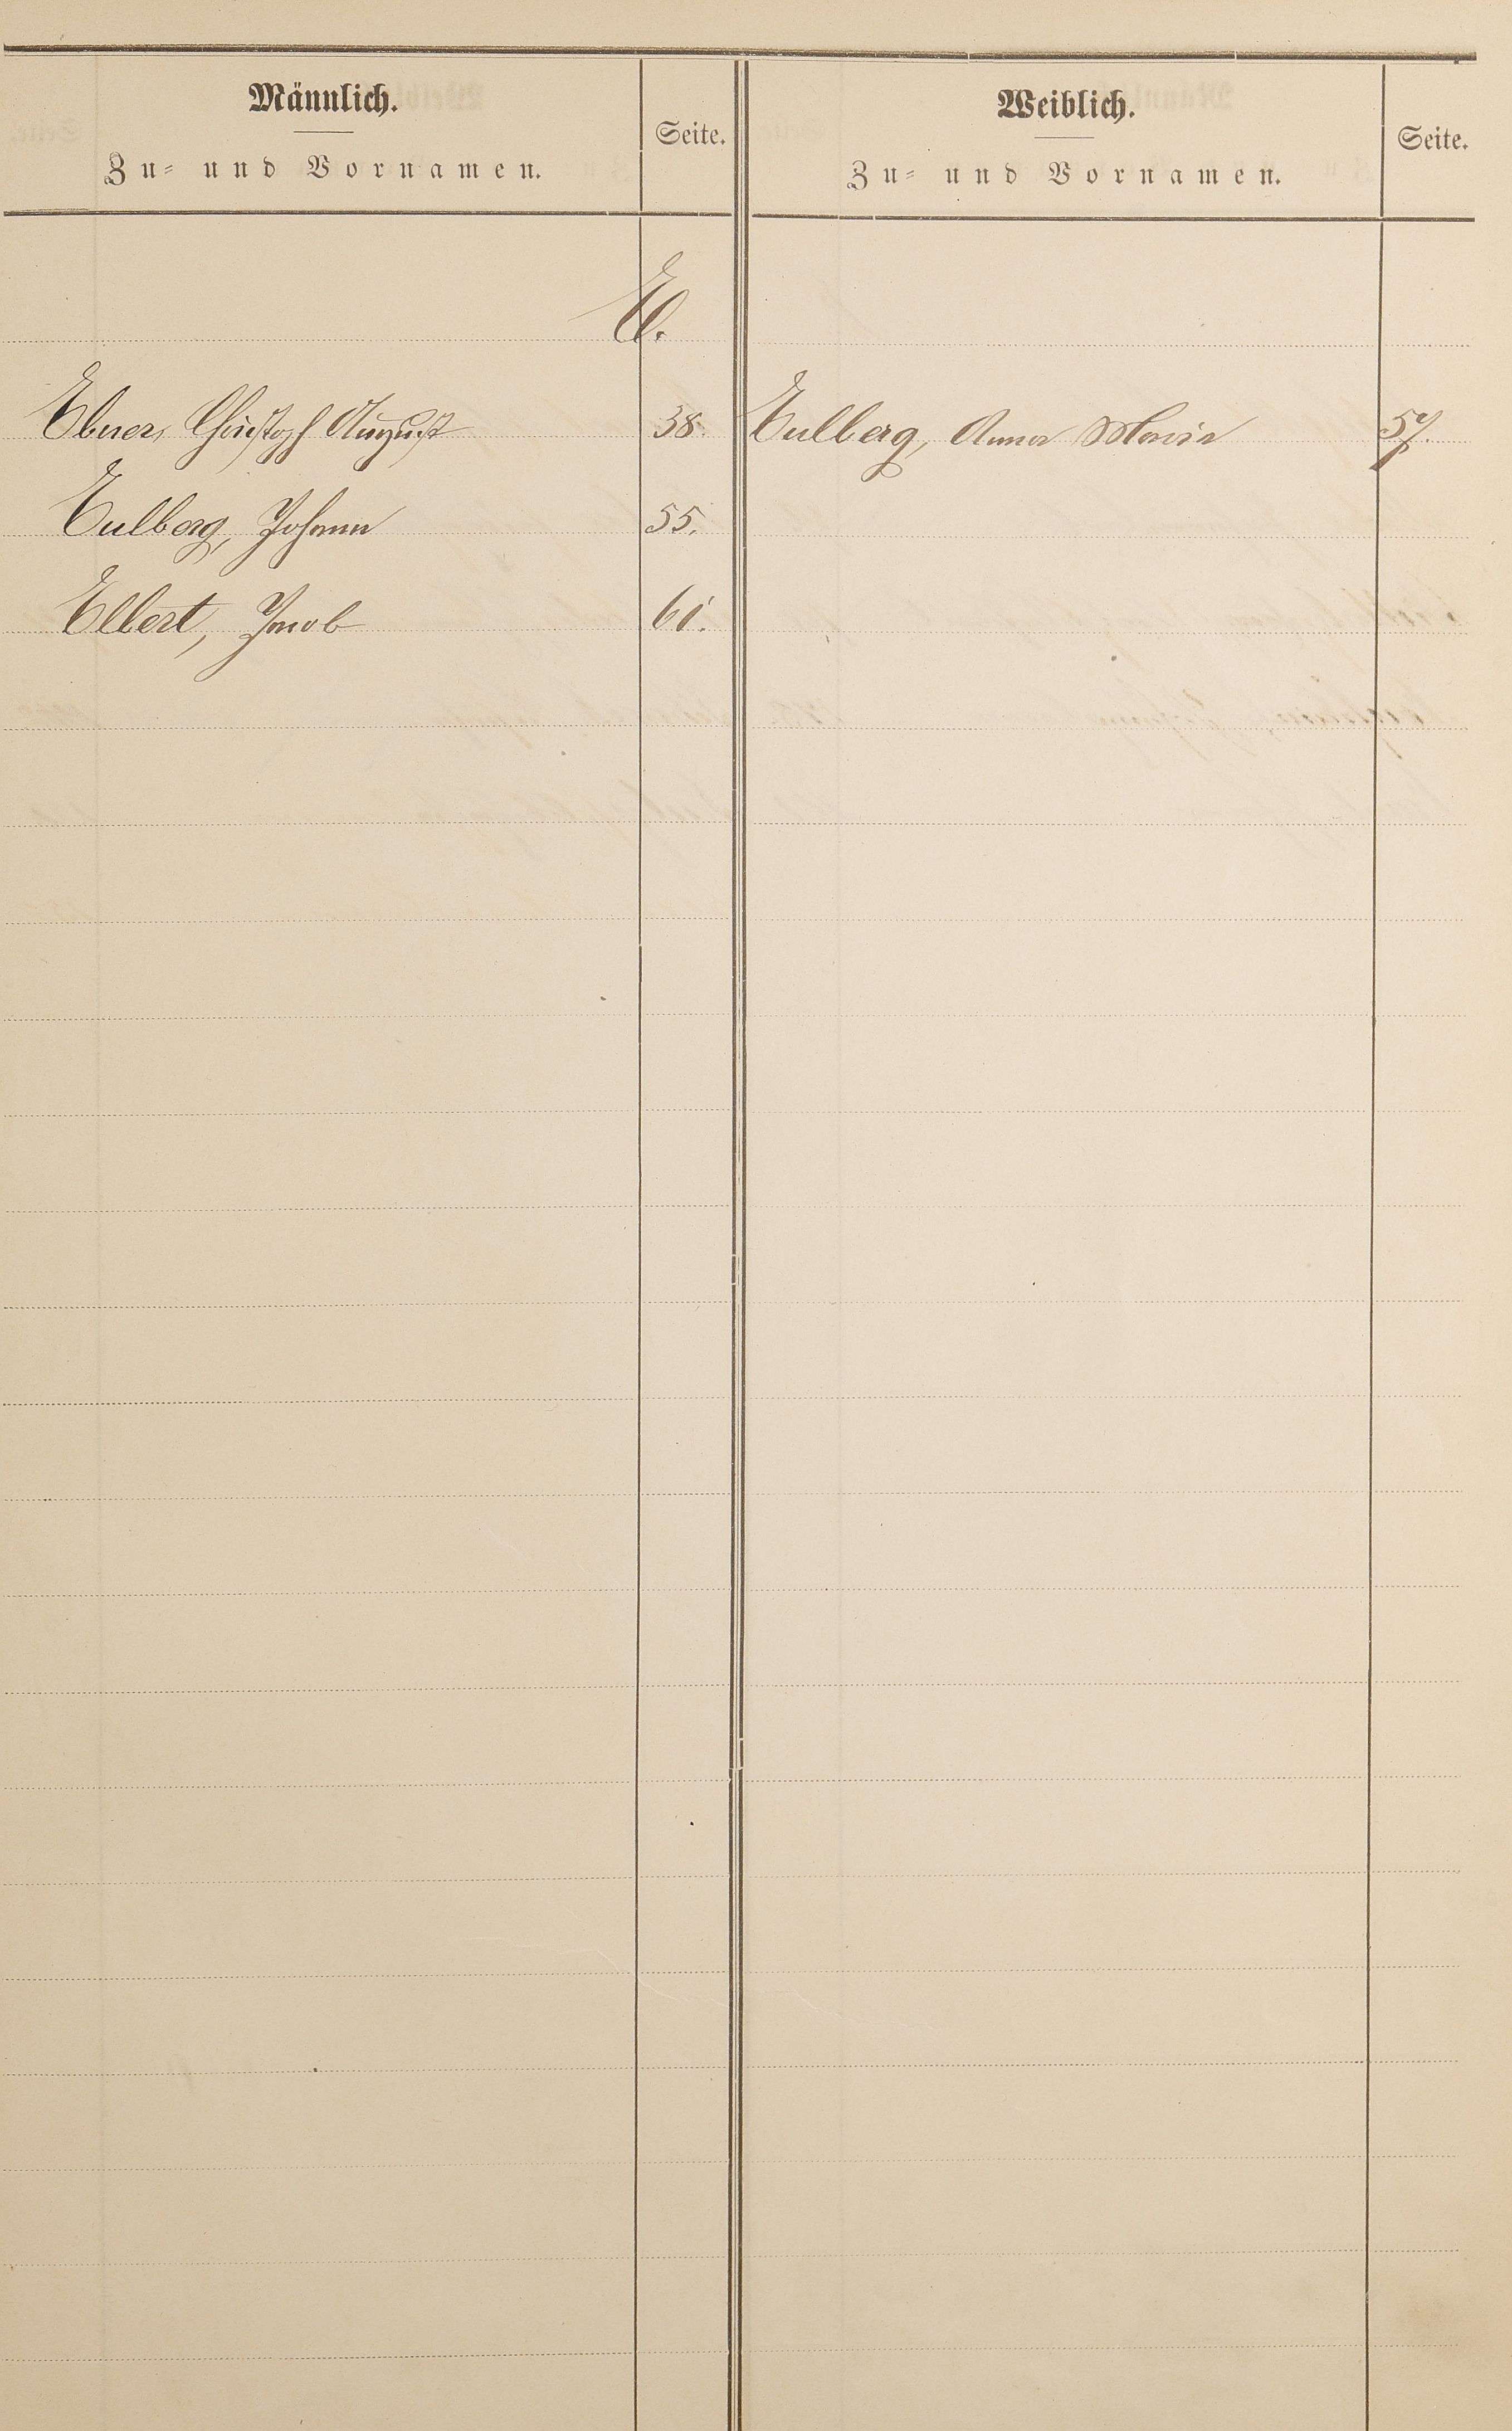 Männlich.
Zu- und Vornamen.
Seite.
Weiblich.
Zu- und Vornamen.
Seite.
E.
Ebner, Christoph August 38. Eulberg, Anna Maria 57.
Eulberg, Johann 55.
Elbert, Jacob 61.